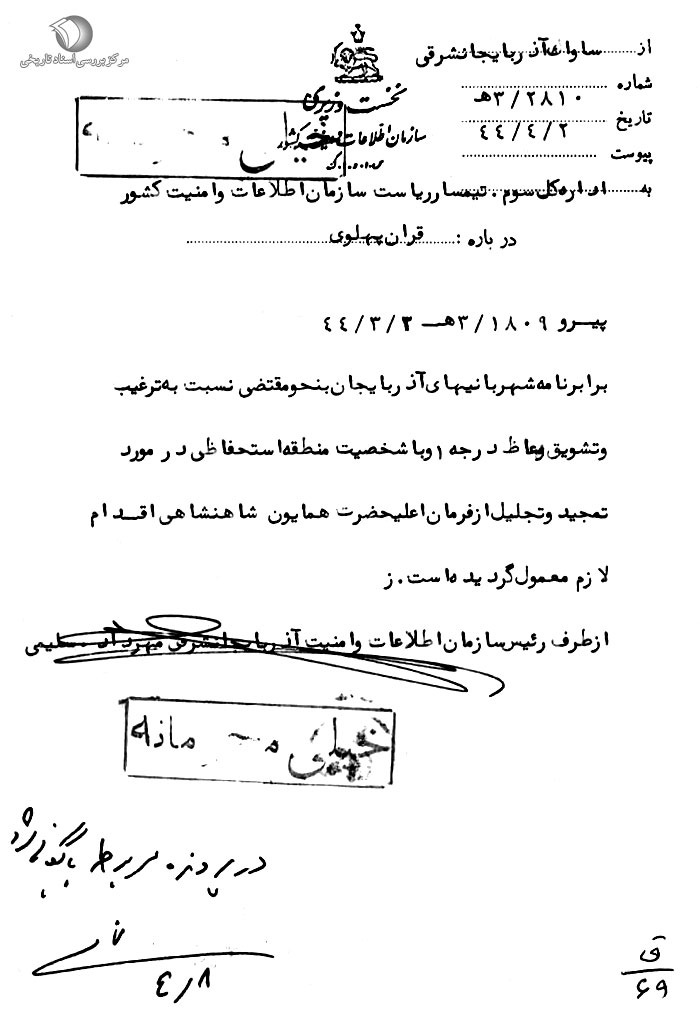 مرکز بررسی اسناد تاریخی
از ساواک آذربایجانشرقی
شماره ۲۸۱۰/۳هـ
تاریخ ۴۴/۴/۲
پیوست
نخست وزیری
سازمان اطلاعات و امنیت کشور
س.ا.و.ا.ک
خیلی
به اداره کل سوم . تیمسار ریاست سازمان اطلاعات وامنیت کشور
درباره : قران پهلوی
پیرو ۱۸۰۹/۳هـ ۴۴/۳/۲
برابر نامه شهربانیهای آذربایجان بنحو مقتضی نسبت به ترغیب
وتشویق وعاظ درجه ۱ وبا شخصیت منطقه استحفاظی در مورد
تمجید وتجلیل از فرمان اعلیحضرت همایون شاهنشاهی اقدام
لازم معمول گردیده است . ز
از طرف رئیس سازمان اطلاعات وامنیت آذربایجانشرقی مهرداد . سلیمی
خیلی محرمانه
در پرونده مربوط بایگانی شود
۴/۸
ق
۶۹